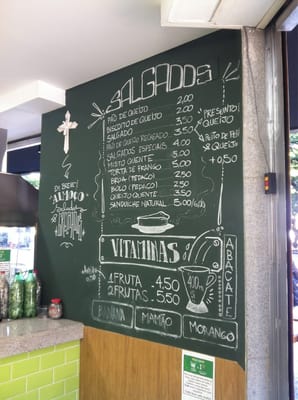 SALGADOS
PÃO DE QUEIJO 2,00
BISCOITO DE QUEIJO 2,00
SALGADO 3,50
PÃO DE QUEIJO RECHEADO 3,50
SALGADOS ESPECIAIS 4,00
MISTO QUENTE 5,00
TORTA DE FRANGO 5,00
BROA (PEDAÇO) 2,50
BOLO (PEDAÇO) 2,50
QUEIJO QUENTE 3,50
SANDUICHE NATURAL 5,00
PRESUNTO
QUEIJO
PEITO DE PERU
QUEIJO
+0,50
EM BREVE!
"ALMMO"
VITAMINAS
1 FRUTA 4,50
2 FRUTAS 5,50
400
ml
ABACATE
BANANA
MAMÃO
MORANGO